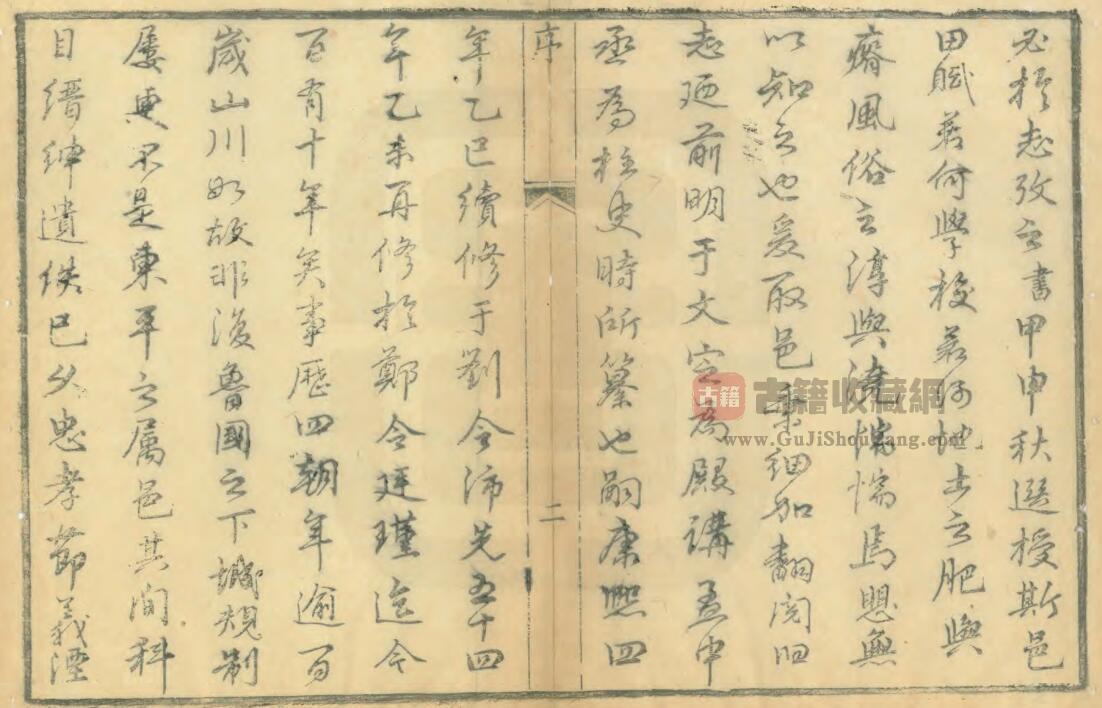 必於志攷之書甲申秋選授斯邑
田賦若何學校若何地土之肥與
瘠風俗之淳與澆惴惴焉愳無
以知之也爰取邑乘細加翻閱旧
志廼前明于文定為殿講孟中
丞為柱史時所纂也嗣康熙四
序
二
年乙巳續修于劉令沛先五十四
年乙未再修於鄭令廷瑾迄今
百有十年矣事歷四朝年逾百
歲山川如故非復魯國之下城規制
屡更不是東平之属邑其間科
目縉紳遺佚已久忠孝節義湮
古籍收藏網
www.GuJiShouCang.com